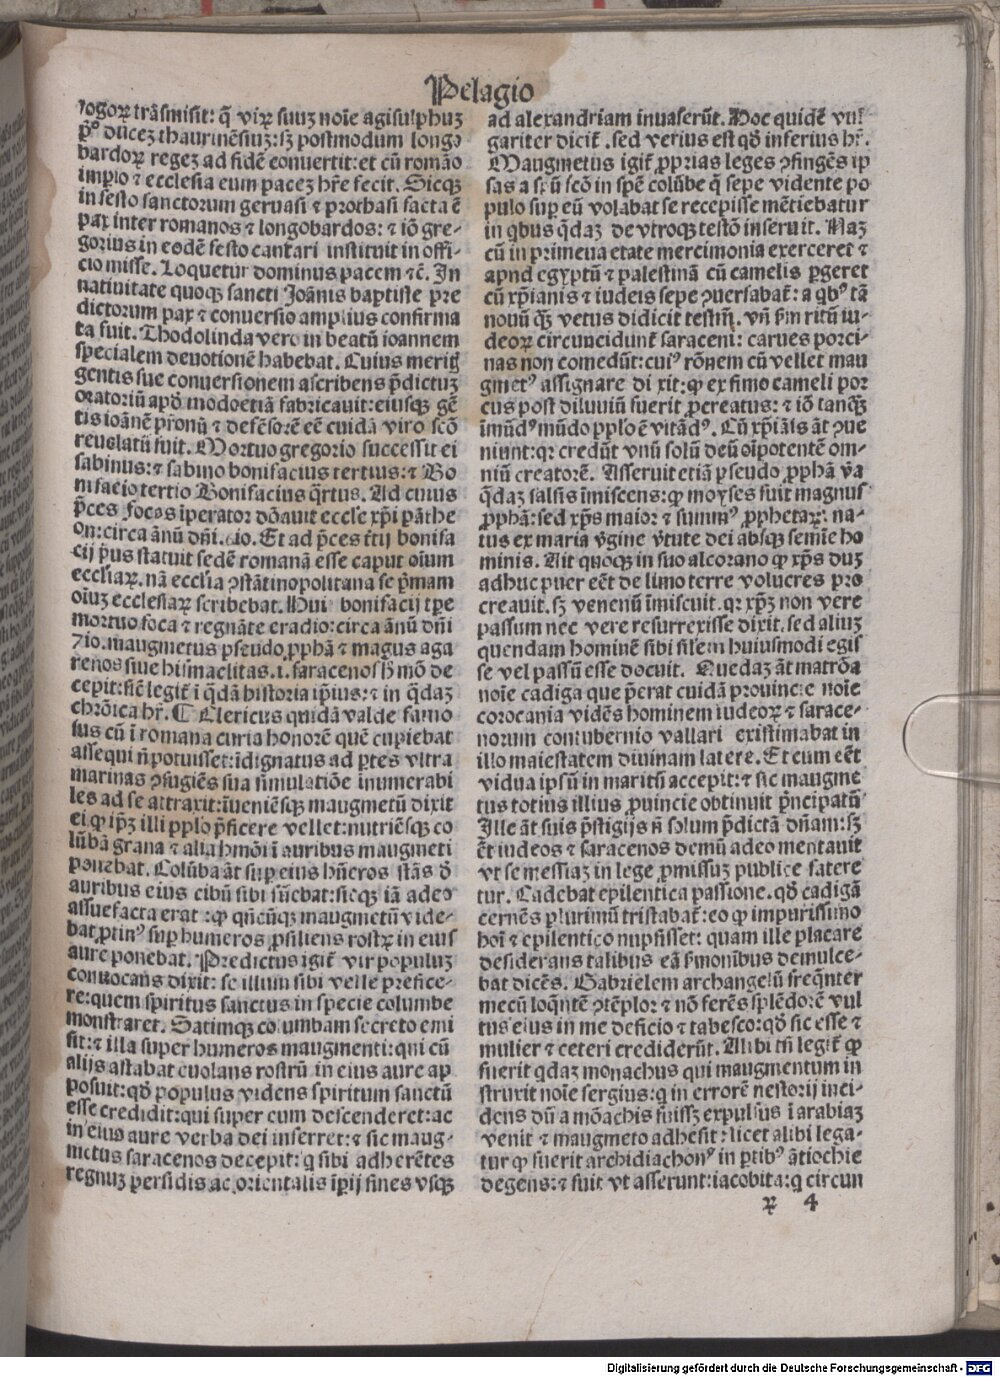 Pelagio
gogorꝝ trãsmisit: q̃ virꝝ suuʒ noĩe agisulphuʒ
p̃º duceʒ thaurinẽsiuʒ:sʒ postmodum longo
bardorꝝ regeʒ ad fidẽ cõuertit:et cũ romão
imp̱io ⁊ ecclesia eum paceʒ hr̃e fecit. Sicqꝫ
in festo sanctorum geruasi ⁊ prothasi facta ẽ
pax inter romanos ⁊ longobardos: ⁊ iõ gre-
gorius in eodẽ festo cantari instituit in offi-
cio misse. Loquetur dominus pacem ⁊c̃. In
natiuitate quoqꝫ sancti Joãnis baptiste pre
dictorum pax ⁊ conuersio amplius confirma
ta fuit. Thodolinda vero in beatũ ioannem
specialem deuotionẽ habebat. Cuius meritꝭ
gentis sue conuersionem ascribens p̃dictuʒ
oratoriũ apd̃ modoetiã fabricauit:eiusqꝫ gẽ
tis ioãnẽ pr̃onũ ⁊ defẽsorẽ eẽ cuidã viro scõ
reuelatũ fuit. Mortuo gregorio successit ei
sabinus:⁊ sabino bonifacius tertius:⁊ Bo
nifacio tertio Bonifacius q̃rtus. Ad cuius
p̃ces focas ĩperator dõauit eccle xp̃i pãthe
on:circa ãnũ dñi.610. Et ad p̃ces t̃tij bonifa
cij p̃us statuit sedẽ romanã esse caput oĩum
eccliaꝝ. nã ecclia ɔstãtinopolitana se p̃mam
oĩuʒ ecclesiaꝝ scribebat. Huiꝰ bonifacij tp̃e
mortuo foca ⁊ regnãte eradio:circa ãnũ dñi
710.maugmetus pseudo ꝓphã ⁊ magus aga
renos siue hismaelitas.i.saracenos h̃ mõ de
cepit:sic̃ legit̃ ĩ q̃dã historia ip̃ius:⁊ in q̃daʒ
chrõica hr̃. ¶ Clericus quidã valde famo
sus cũ ĩ romana curia honorẽ quẽ cupiebat
assequi ñ potuisset:ĩdignatus ad p̱tes vltra
marinas ɔfugiẽs sua simulatiõe innumerabi
les ad se attraxit:ĩueniẽsqꝫ maugmetũ dixit
ei ꝙ ip̃ʒ illi pplo p̃ficere vellet:nutriẽsqꝫ co
lũbã grana ⁊ alia hmõi ĩ auribus maugmeti
ponebat. Colũba ãt suꝑ eius hũeros stãs d̃
auribus eius cibũ sibi sũebat:sicqꝫ iã adeo
assuefacta erat :ꝙ qñcũqꝫ maugmetũ vide-
bat,ꝓtinꝰ suꝑ humeros ꝓsiliens rostrꝝ in eius
aure ponebat. Predictus igit̃ vir populuʒ
conuocans dixit: se illum sibi velle prefice-
re:quem spiritus sanctus in specie columbe
monstraret. Statimqꝫ columbam secreto emi
sit:⁊ illa super humeros maugmenti:qui cũ
alijs astabat euolans rostrũ in eius aure ap
posuit:qd̃ populus videns spiritum sanctũ
esse credidit:qui super eum descenderet:ac
in eius aure verba dei inferret:⁊ sic maug-
metus saracenos decepit:q̃ sibi adherẽtes
regnuʒ persidis ac orientalis ĩp̱ij fines vsqꝫ
ad alexandriam inuaserũt. Hoc quidẽ vul-
gariter dicit̃ .sed verius est qd̃ inferius hr̃.
Maugmetus igit̃ ꝓprias leges ɔfingẽs ip
sas a sp̃u scõ in spẽ colũbe q̃ sepe vidente po
pulo suꝑ eũ volabat se recepisse mẽtiebatur
in qbus q̃daʒ de vtroqꝫ testõ inseruit. Naʒ
cũ in primeua etate mercimonia exerceret ⁊
apud egyptũ ⁊ palestinã cũ camelis ꝑgeret
cũ xp̃ianis ⁊ iudeis sepe ɔuersabat̃: a qbꝰ tã
nouũ q̃ʒ vetus didicit testm̃. vñ ẜm ritũ iu-
deorꝝ circuncidunt̃ saraceni: carnes porci-
nas non comedũt:cuiꝰ rõnem cũ vellet mau
gmetꝰ assignare dixit:ꝙ ex fimo cameli por
cus post diluuiũ fuerit ꝓcreatus: ⁊ iõ tanqꝫ̃
ĩmũdꝰ mũdo pplo ẽ vitãdꝰ. Cũ xp̃iãis ãt ɔue
niunt:qꝛ credũt vnũ solũ deũ oĩpotentẽ om-
niũ creatorẽ. Asseruit etiã pseudo ꝓphã v̓a
q̃daʒ falsis ĩmiscens:ꝙ moyses fuit magnus
ꝓphã:sed xp̃s maior ⁊ summꝰ ꝓphetaꝝ: na-
tus ex maria v̓gine v̓tute dei absqꝫ semĩe ho
minis. Ait quoqꝫ in suo alcorano ꝙ xp̃s duʒ
adhuc puer eẽt de limo terre volucres pro
creauit.sʒ venenũ ĩmiscuit.qꝛ xp̃ʒ non vere
passum nec vere resurrexisse dixit.sed aliuʒ
quendam hominẽ sibi silem huiusmodi egis
se vel passũ esse docuit. Quedaʒ ãt matrõa
noĩe cadiga que p̃erat cuidã prouincie noĩe
corocania vidẽs hominem iudeorꝝ ⁊ sarace-
norum contubernio vallari existimabat in
illo maiestatem diuinam latere. Et cum eẽt
vidua ipsũ in maritũ accepit:⁊ sic maugme
tus totius illius ꝓuincie obtinuit p̃ncipatũ
Ille ãt suis p̃stigijs ñ solum p̃dictã dñam:sʒ
et̃ iudeos ⁊ saracenos demũ adeo mentauit
vt se messiaʒ in lege ꝓmissuʒ publice fatere
tur. Cadebat epilentica passione. qd̃ cadigã
cernẽs plurimũ tristabat̃:eo ꝙ impurissimo
hoĩ ⁊ epilentico nupsisset: quam ille placare
desiderans talibus eã ẜmonibus demulce-
bat dicẽs. Gabrielem archangelũ freq̃nter
mecũ loq̃ntẽ ɔtẽplor ⁊ nõ ferẽs splẽdorẽ vul
tus eius in me deficio ⁊ tabesco:qd̃ sic esse ⁊
mulier ⁊ ceteri crediderũt. Alibi tñ legit̃ ꝙ
fuerit qdaʒ monachus qui maugmentum in
struxit noĩe sergius:q in errorẽ nestorij inci-
dens dũ a mõachis fuissʒ expulsus ĩ arabiaʒ
venit ⁊ maugmeto adhesit :licet alibi lega-
tur ꝙ fuerit archidiachonꝰ in ꝑtibꝰ ãtiochie
degens:⁊ fuit vt asserunt:iacobita:q circun
ꝝ 4
Digitalisierung gefördert durch die Deutsche Forschungsgemeinschaft - DFG